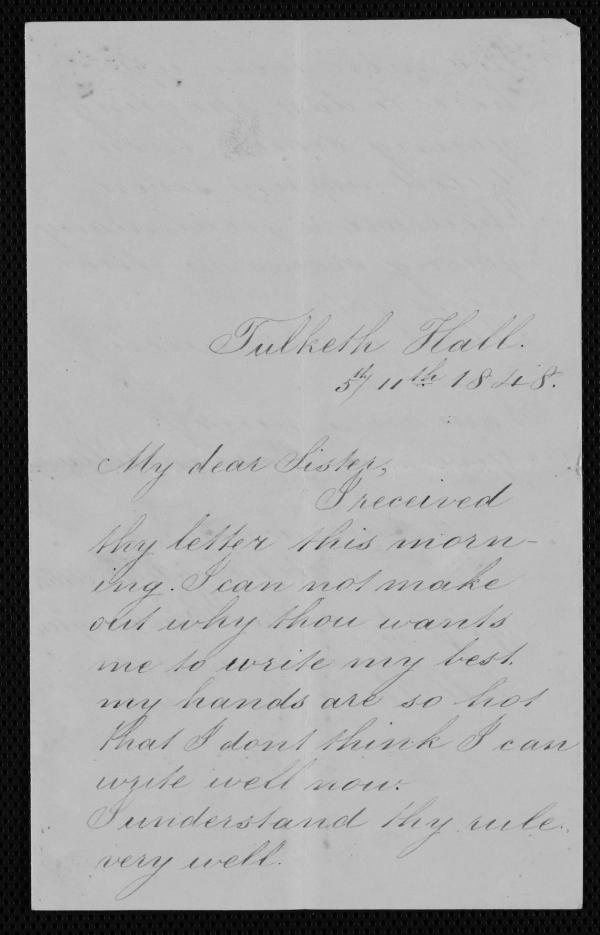 Tulketh Hall.
5th/ 11th 1848.
My dear Sister,
I received
thy letter this morn-
ing. I can not make
out why thou wants
me to write my best.
my hands are so hot
that I dont think I can
write well now.
I understand thy rule
very well.